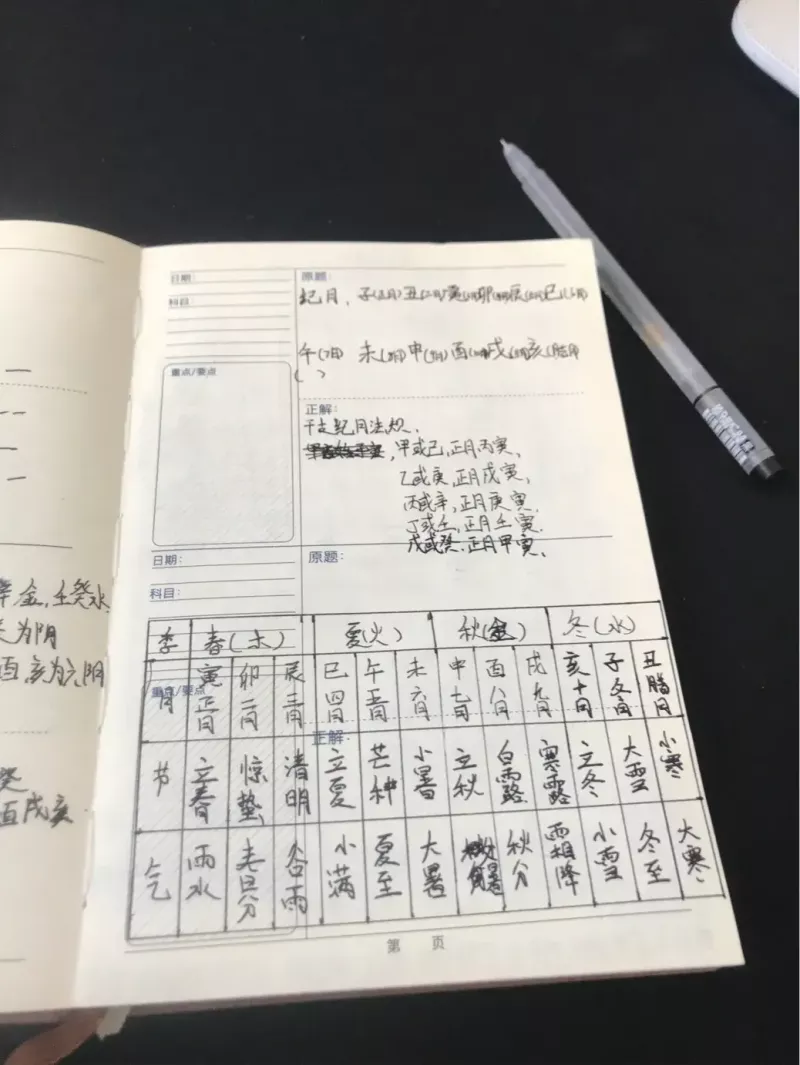 日期:
原题:
纪月、子(正月)丑(二月)寅 卯 辰 巳
科目
午 未 申 酉 戌 亥(腊月)
( )
重点/要点
正解:
干支纪月法规、
甲或己,正月丙寅、
乙或庚,正月戊寅、
丙或辛,正月庚寅、
丁或壬,正月壬寅、
戊或癸,正月甲寅、
日期:
原题:
科目:
季 春(木) 夏(火) 秋(金) 冬(水)
月 寅正月 卯二月 辰三月 巳四月 午五月 未六月 申七月 酉八月 戌九月 亥十月 子冬月 丑腊月
重点/要点
正解:
节 立春 惊蛰 清明 立夏 芒种 小暑 立秋 白露 寒露 立冬 大雪 小寒
气 雨水 春分 谷雨 小满 夏至 大暑 处暑 秋分 霜降 小雪 冬至 大寒
第 页
金,壬癸水
为阴
酉亥为六阴
癸
酉戌亥